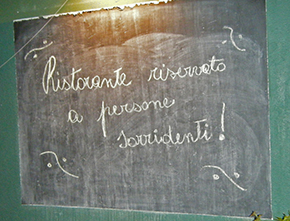 Ristorante riservato
a persone
sorridenti!